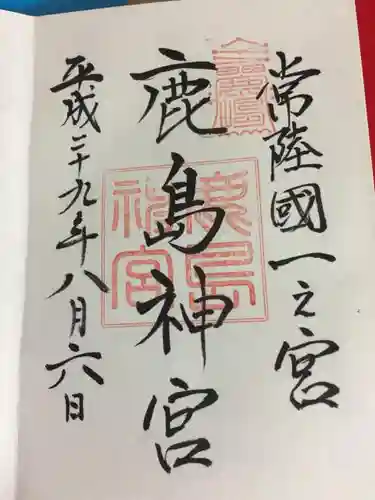 常陸國一之宮
鹿島神宮
鹿島神宮
平成二十九年八月六日